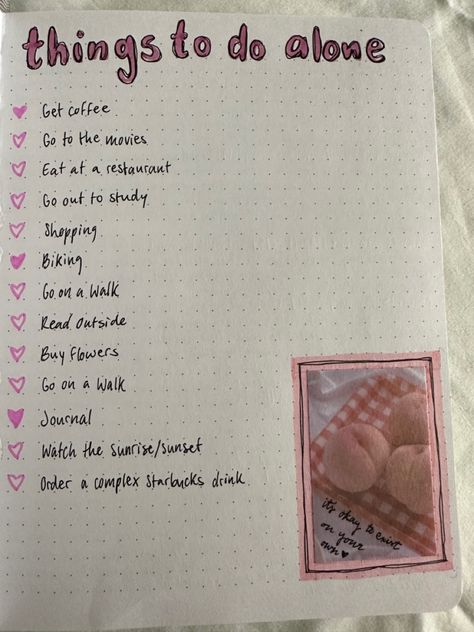 things to do alone
Get coffee
Go to the movies
Eat at a restaurant
Go out to study
Shopping
Biking
Go on a Walk
Read Outside
Buy Flowers
Go on a Walk
Journal
Watch the sunrise/sunset
Order a complex Starbucks drink
it's okay to exist
on your
own